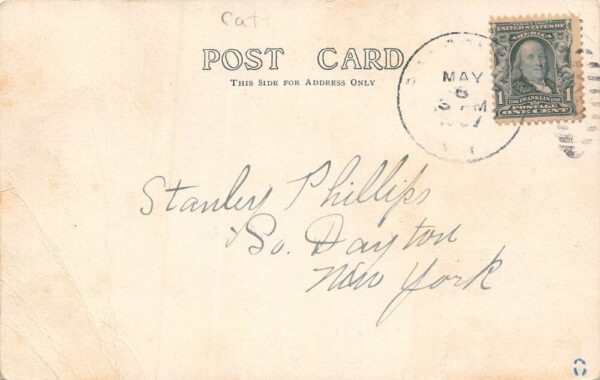 Cat
POST CARD
THIS SIDE FOR ADDRESS ONLY
MAY
6
M
UNITED STATES OF
AMERICA
1
1
FRANKLIN
POSTAGE
ONE CENT
Stanley Phillips
So. Dayton
New York